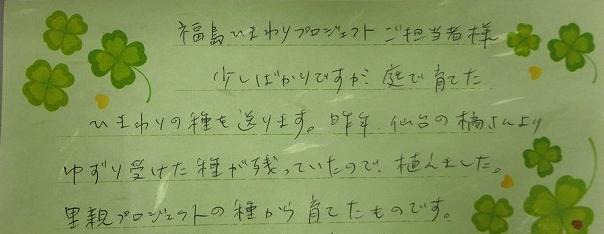 福島ひまわりプロジェクト ご担当者様
少しばかりですが、庭で育てた
ひまわりの種を送ります。昨年、仙台の橋さんより
ゆずり受けた種が残っていたので、植えました。
里親プロジェクトの種から育てたものです。